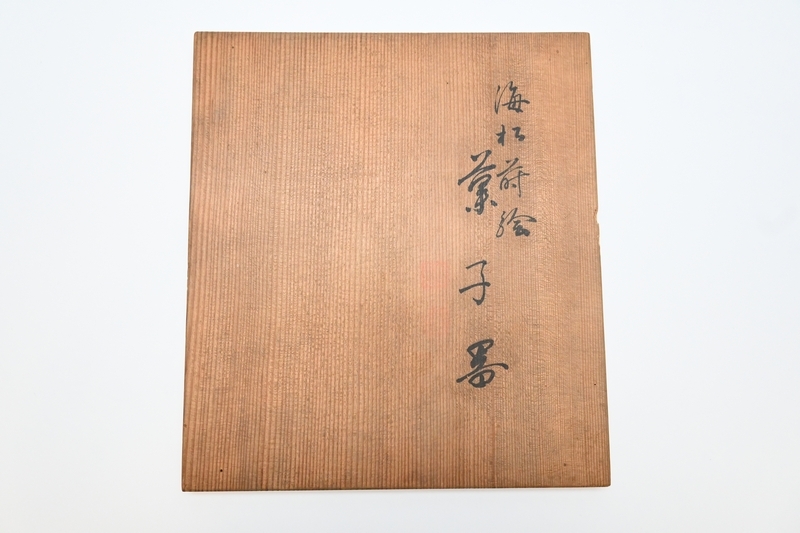 海松蒔絵
菓子器